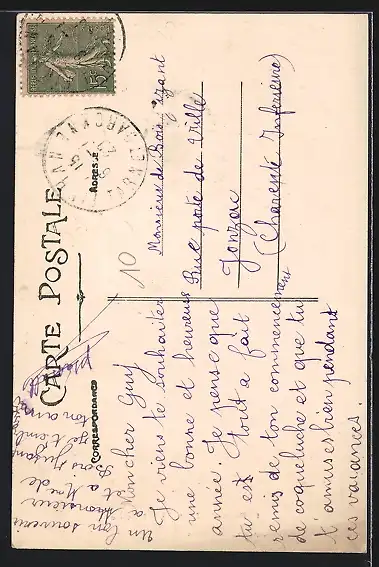 CARTE POSTALE
CORRESPONDANCE
ADRESSE
10
15
Mon cher Guy
Je viens te souhaiter
une bonne et heureuse
année. Je pense que
tu es tout a fait
remis de ton commencement
de coqueluche et que tu
t'amuses bien pendant
ces vacances.
Un bon souvenir
a Monsieur
et a Mme de
Bois
ton ami
Monsieur de Bois
Rue porte de Ville
Jonzac
(Charente Inferieure)